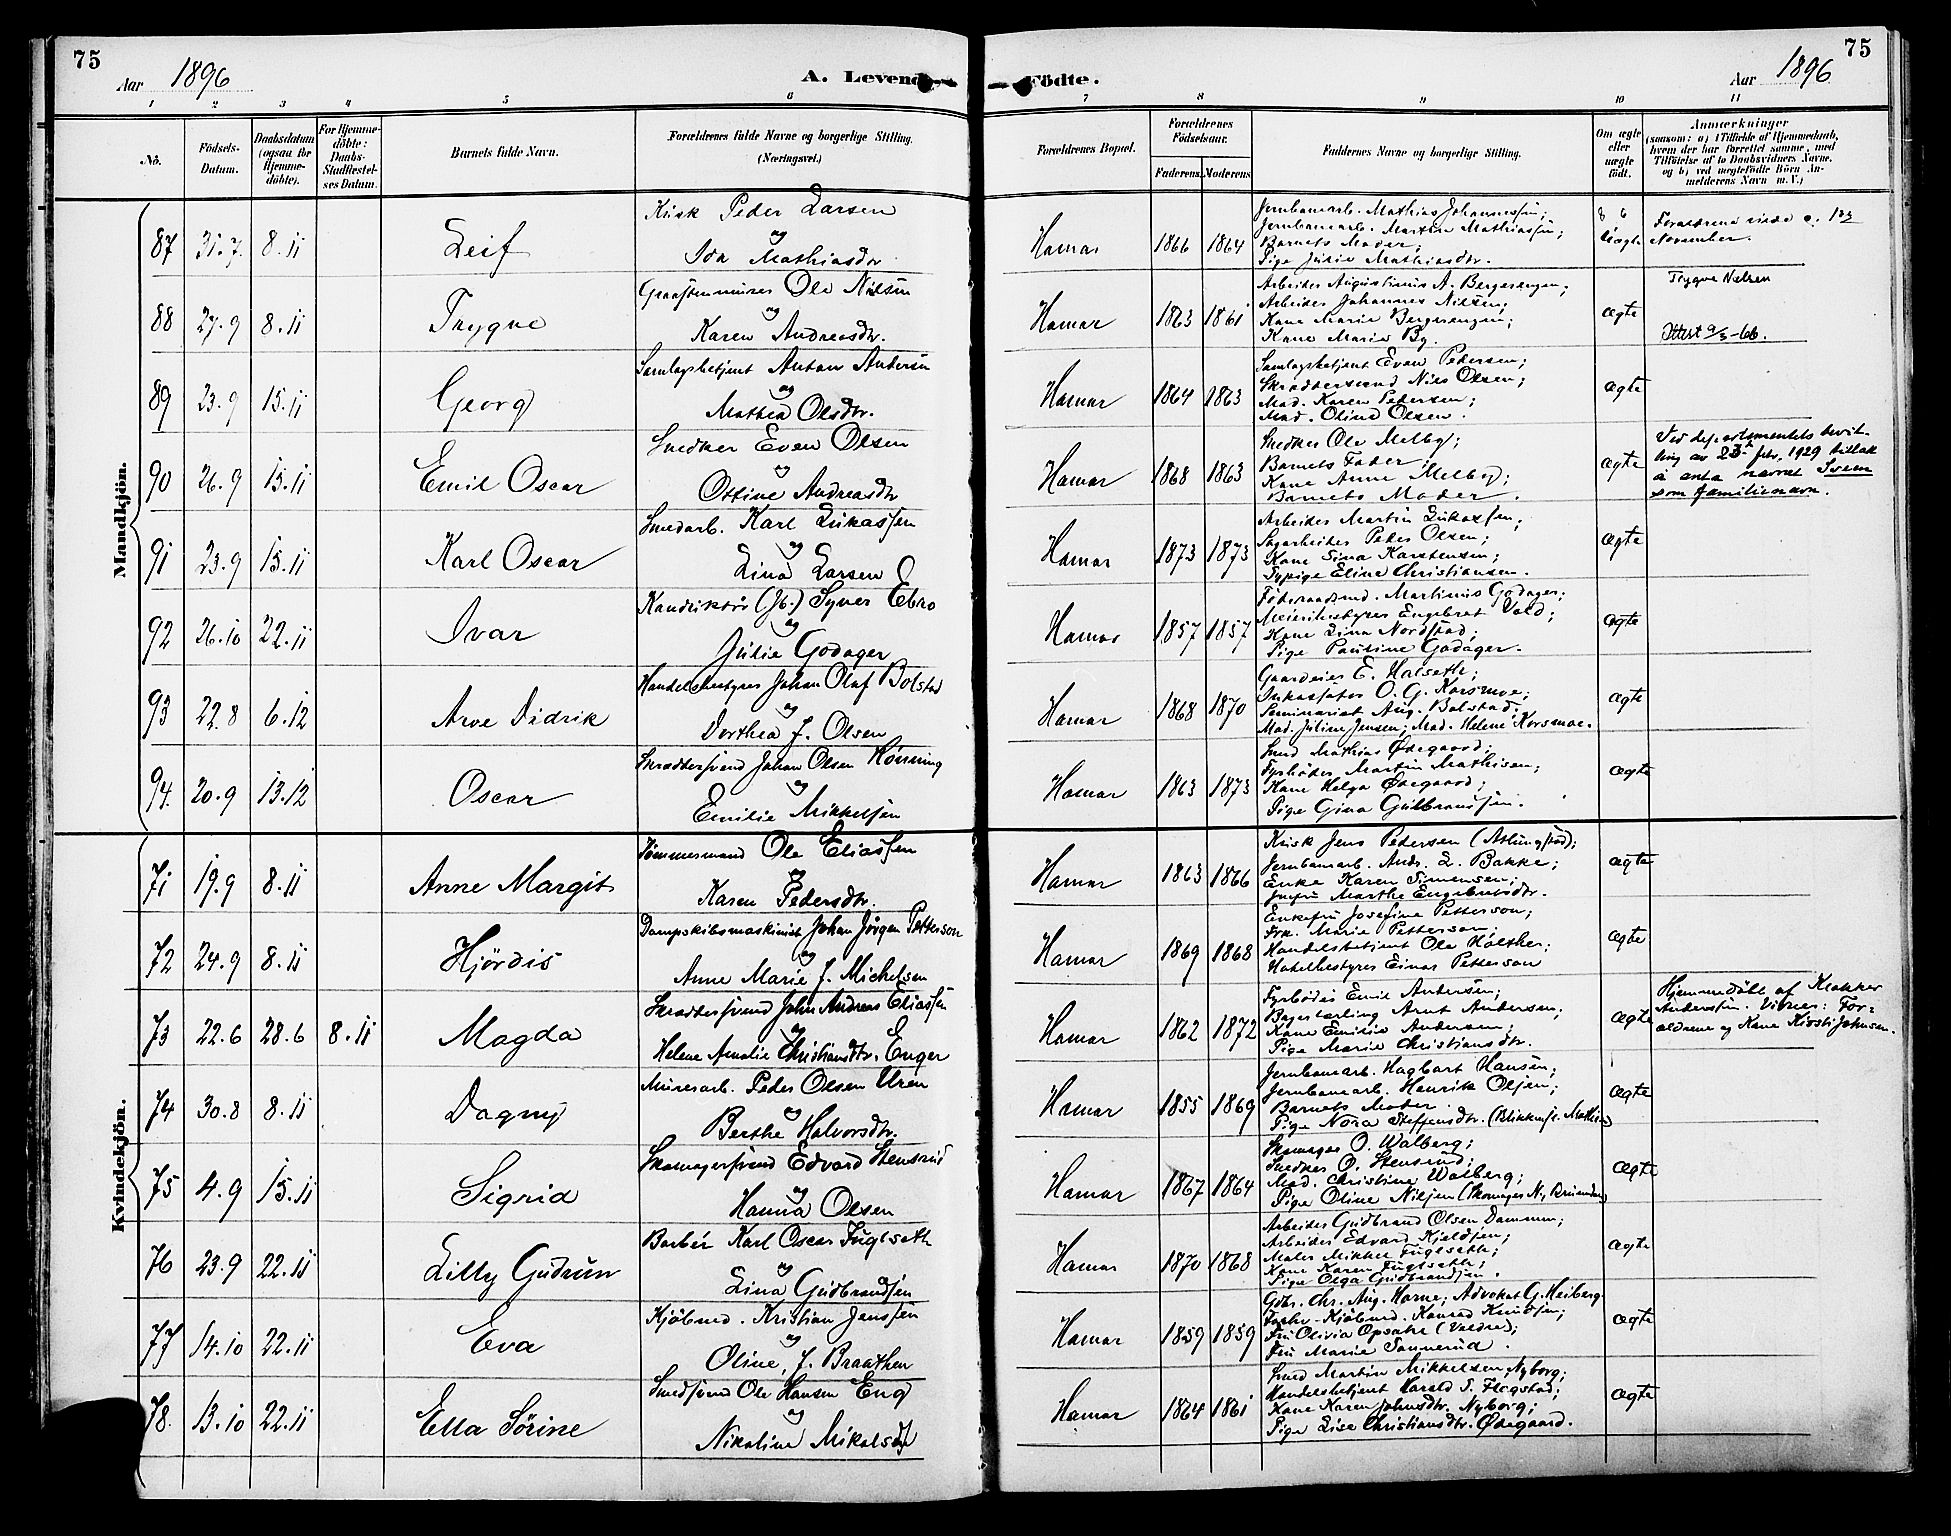 75
Aar 1896
A. Levende
1 2 3 4 5 6
Nö.
Födsels-
Datum.
Daabsdatum
(ogsaa for
Hjemme-
döbte).
For Hjemme-
döbte:
Daabs-
Stadfæstel-
ses Datum.
Barnets fulde Navn.
Forældrenes fulde Navne og borgerlige Stilling.
(Næringsvei.)
Mandkjön.
Kusk Peder Larsen
87 31.7. 8.11 Leif og
Ida Mathiasdtr
Graastensmurer Ole Nilsen
88 27.9 8.11 Trygve og
Karen Andreasdtr.
Samlagsbetjent Anton Andersen
89 23.9 15.11 Georg og
Mathea Olsdtr.
Snedker Even Olsen
90 26.9 15.11 Emil Oscar og
Ottine Andreasdtr
Smedarb. Karl Lukassen
91 23.9 15.11 Karl Oscar og
Lina Larsen
Konduktør (Jb.) Syver Ebro
92 26.10 22.11 Ivar og
Julie Godager
Handelsbestyrer Johan Olaf Bolstad
93 22.8 6.12 Arve Didrik og
Dorthea J. Olsen
Skræddersvend Johan Olsen Hönning
94. 20.9 13.12 Oscar og
Emilie Mikkelsen
Kvindekjön.
Tömmermand Ole Eliassen
71 19.9 8.11 Anne Margit og
Karen Pedersdtr.
Dampskibsmaskinist Johan Jörgen Petterson
72 24.9 8.11 Hjördis og
Anne Marie J. Michelsen
Skræddersvend John Andreas Eliassen
73 22.6 28.6 8.11 Magda og
Helene Amalie Christiansdtr. Enger
Murerarb. Peder Olsen Uren
74 30.8 8.11 Dagny og
Berthe Halvorsdtr.
Skomagersvend Edvard Stensrud
75 4.9 15.11 Sigrid og
Hanna Olsen
Barbér Karl Oscar Fuglseth
76 23.9 22.11 Lilly Gudrun og
Lina Gudbrandsen
Kjöbmd. Kristian Jenssen
77 14.10 22.11 Eva og
Oline J. Braathen
Smedsvend Ole Hansen Eng
78. 13.10 22.11 Ella Sörine og
Nikoline Mikalsdtr
75
Födte.
Aar 1896
7 8 9 10 11
Forældrenes Bopæl.
Forældrenes
Födselsaar.
Faderens. Moderens
Faddernes Navne og borgerlige Stilling.
Om ægte
eller
uægte
födt.
Anmærkninger
(saasom: a) i Tilfælde af Hjemmedaab,
hvem der har forrettet samme, med
Tilföielse af to Daabsvidners Navne,
og b) ved uægtefödte Börn An-
melderens Navn m. V.)
Jernbanearb. Mathias Johannessen;
Jernbanearb. Martin Mathiassen;
Hamar 1866 1864 Barnets Moder; Uægte
Pige Julie Mathiasdtr.
November.
Arbeider Augustinus A. Bergersengen;
Arbeider Johannes Nilsen;
Hamar 1863 1861 Kone Marie Bergersengen; ægte
Kone Marie By.
Trygve Nelsen
Attest 9/3-66.
Samlagsbetjent Even Pedersen;
Skræddersvend Nils Olsen;
Hamar 1864 1863 Mad. Karen Pedersen; ægte
Mad. Olina Olsen.
Snedker Ole Melby;
Barnets Fader;
Hamar 1868 1863 Kone Anne Melby; ægte
Barnets Moder.
Ved departementets bevil-
ling av 23 febr. 1929 tillatt
å anta navnet Svem
som familienavn.
Arbeider Martin Lukassen;
Sagarbeider Peder Olsen;
Hamar 1873 1873 Kone Sina Karstensen; ægte
Sypige Eline Christiansen.
Föderaadsmd. Martinus Godager;
Meieribestyrer Engebret Vold;
Hamar 1857 1857 Kone Lina Nordstad; ægte
Pige Pauline Godager.
Gaardeier E. Halseth;
Inkassator O. G. Korsmoe;
Hamar 1868 1870 Seminarist Aug. Bolstad; ægte
Mad. Juline Jensen; Mad. Helene Korsmoe.
Smed Mathias Ødegaard;
Fyrböder Martin Mathisen;
Hamar 1863 1873 Kone Helga Ødegaard; ægte
Pige Gina Gulbrandsen.
Kusk Jens Pedersen (Atlungstad);
Jernbanearb. Andr. L. Bakke;
Hamar 1863 1866 Enke Karen Simensen; ægte
Jmfru Marthe Engebretsdtr.
Enkefru Josefine Petterson;
Frk. Marie Petterson;
Hamar 1869 1868 Handelsbetjent Ole Holther; ægte
Hotelbestyrer Einar Petterson
Fyrböder Emil Andersen;
Bagerlærling Arnt Andersen;
Hamar 1862 1872 Kone Emilie Andersen; ægte
Pige Marie Christiansdtr.
Hjemmedöbt af Klokker
Anderssen. Vidner: For-
ældrene og Kone Kirsti Johnsen.
Jernbanearb. Hagbart Hansen;
Jernbanearb. Henrik Olsen;
Hamar 1855 1869 Barnets Moder ægte
Pige Nora Steffensdtr.
Skomager O. Walberg;
Snedker O. Stensrud;
Hamar 1867 1864 Mad. Christine Walberg; ægte
Pige Oline Nilsen
Arbeider Gudbrand Olsen Dammen;
Arbeider Edvard Kjeldsen;
Hamar 1870 1868 Maler Mikkel Fuglseth; ægte
Kone Karen Fuglseth;
Pige Olga Gudbrandsen.
Gdbr. Chr. Aug. Horne; Advokat G. Heiberg
Kjöbmd. Konrad Knudsen;
Hamar 1859 1859 Fru Olivia Opsahl (Valdres); ægte
Fru Marie Sannerud.
Smed Martin Mikkelsen Nyborg;
Handelsbetjent Harald S. Flagstad;
Hamar 1864 1861 Kone Karen Johnsdtr. Nyborg; ægte
Pige Lise Christiansdtr. Ødegaard.